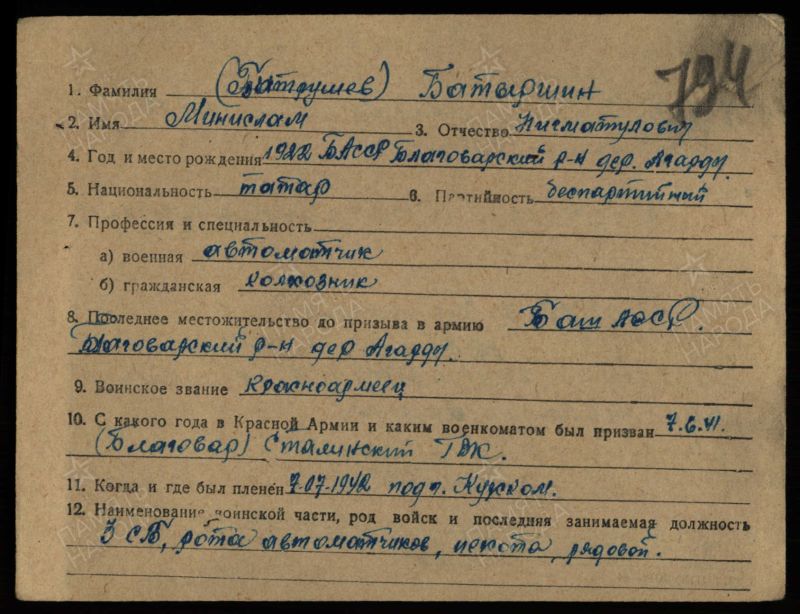 794
1. Фамилия (Батрушев) Батыршин
2. Имя Минислам 3. Отчество Нигматулович
4. Год и место рождения 1922 БАССР Благоварский р-н дер. Агарды.
5. Национальность татар 6. Партийность беспартийный
7. Профессия и специальность
а) военная автоматчик
б) гражданская колхозник
8. Последнее местожительство до призыва в армию Баш АССР.
Благоварский р-н дер Агарды.
9. Воинское звание Красноармеец
10. С какого года в Красной Армии и каким военкоматом был призван 7.6.41.
(Благовар) Сталинский ГВК.
11. Когда и где был пленен 7-07-1942 под г. Курском.
12. Наименование воинской части, род войск и последняя занимаемая должность
3 СБ, рота автоматчиков, пехота, рядовой.
ПАМЯТЬ НАРОДА